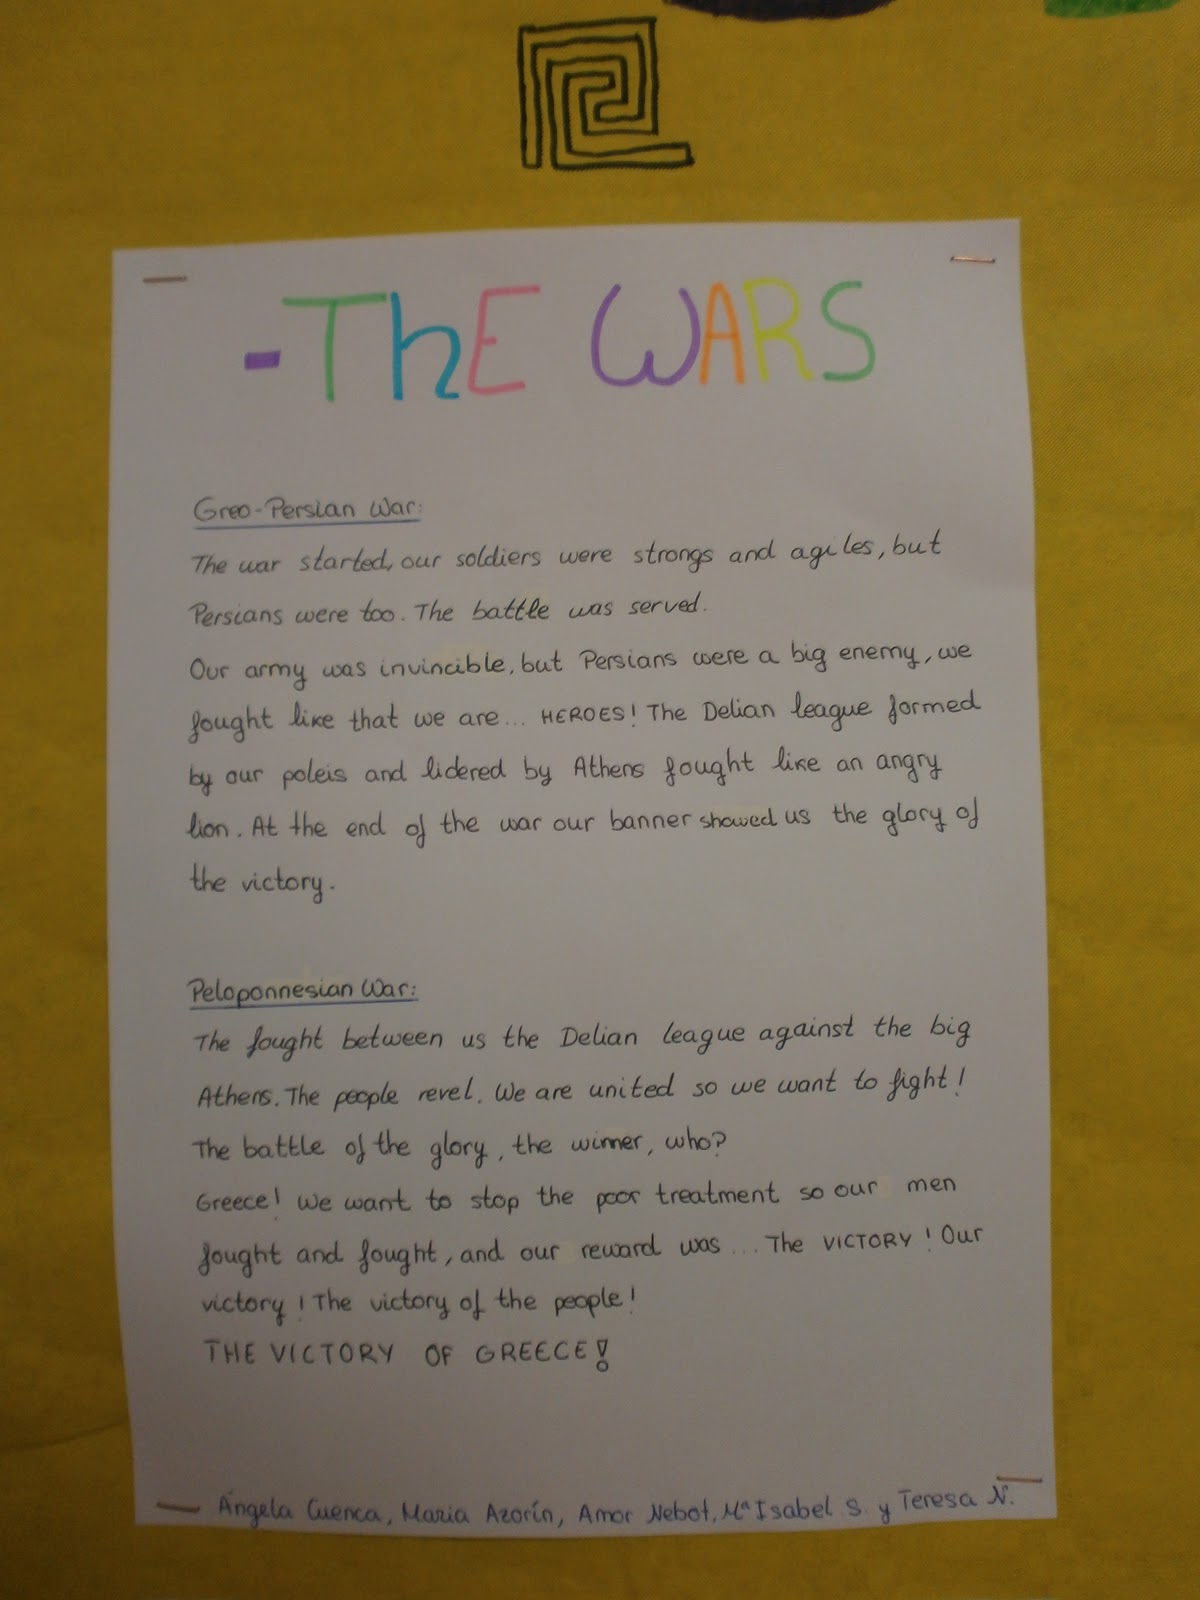 -ThE WARS
Greo-Persian War:
The war started, our soldiers were strongs and agiles, but
Persians were too. The battle was served.
Our army was invincible, but Persians were a big enemy, we
fought like that we are... HEROES! The Delian league formed
by our poleis and lidered by Athens fought like an angry
lion. At the end of the war our banner showed us the glory of
the victory.
Peloponnesian War:
The fought between us the Delian league against the big
Athens. The people revel. We are united so we want to fight!
The battle of the glory, the winner, who?
Greece! We want to stop the poor treatment so our men
fought and fought, and our reward was... The VICTORY! Our
victory! The victory of the people!
THE VICTORY OF GREECE!
Ángela Cuenca, Maria Azorín, Amor Nebot, Mª Isabel S. y Teresa N.